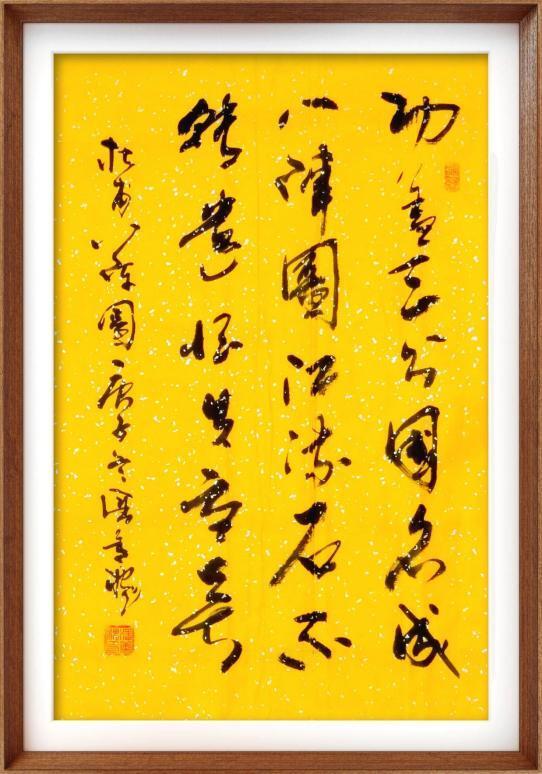 功蓋三分國名成
八陣圖江流石不
轉遺恨失吞吳
杜甫八陣圖庚子冬